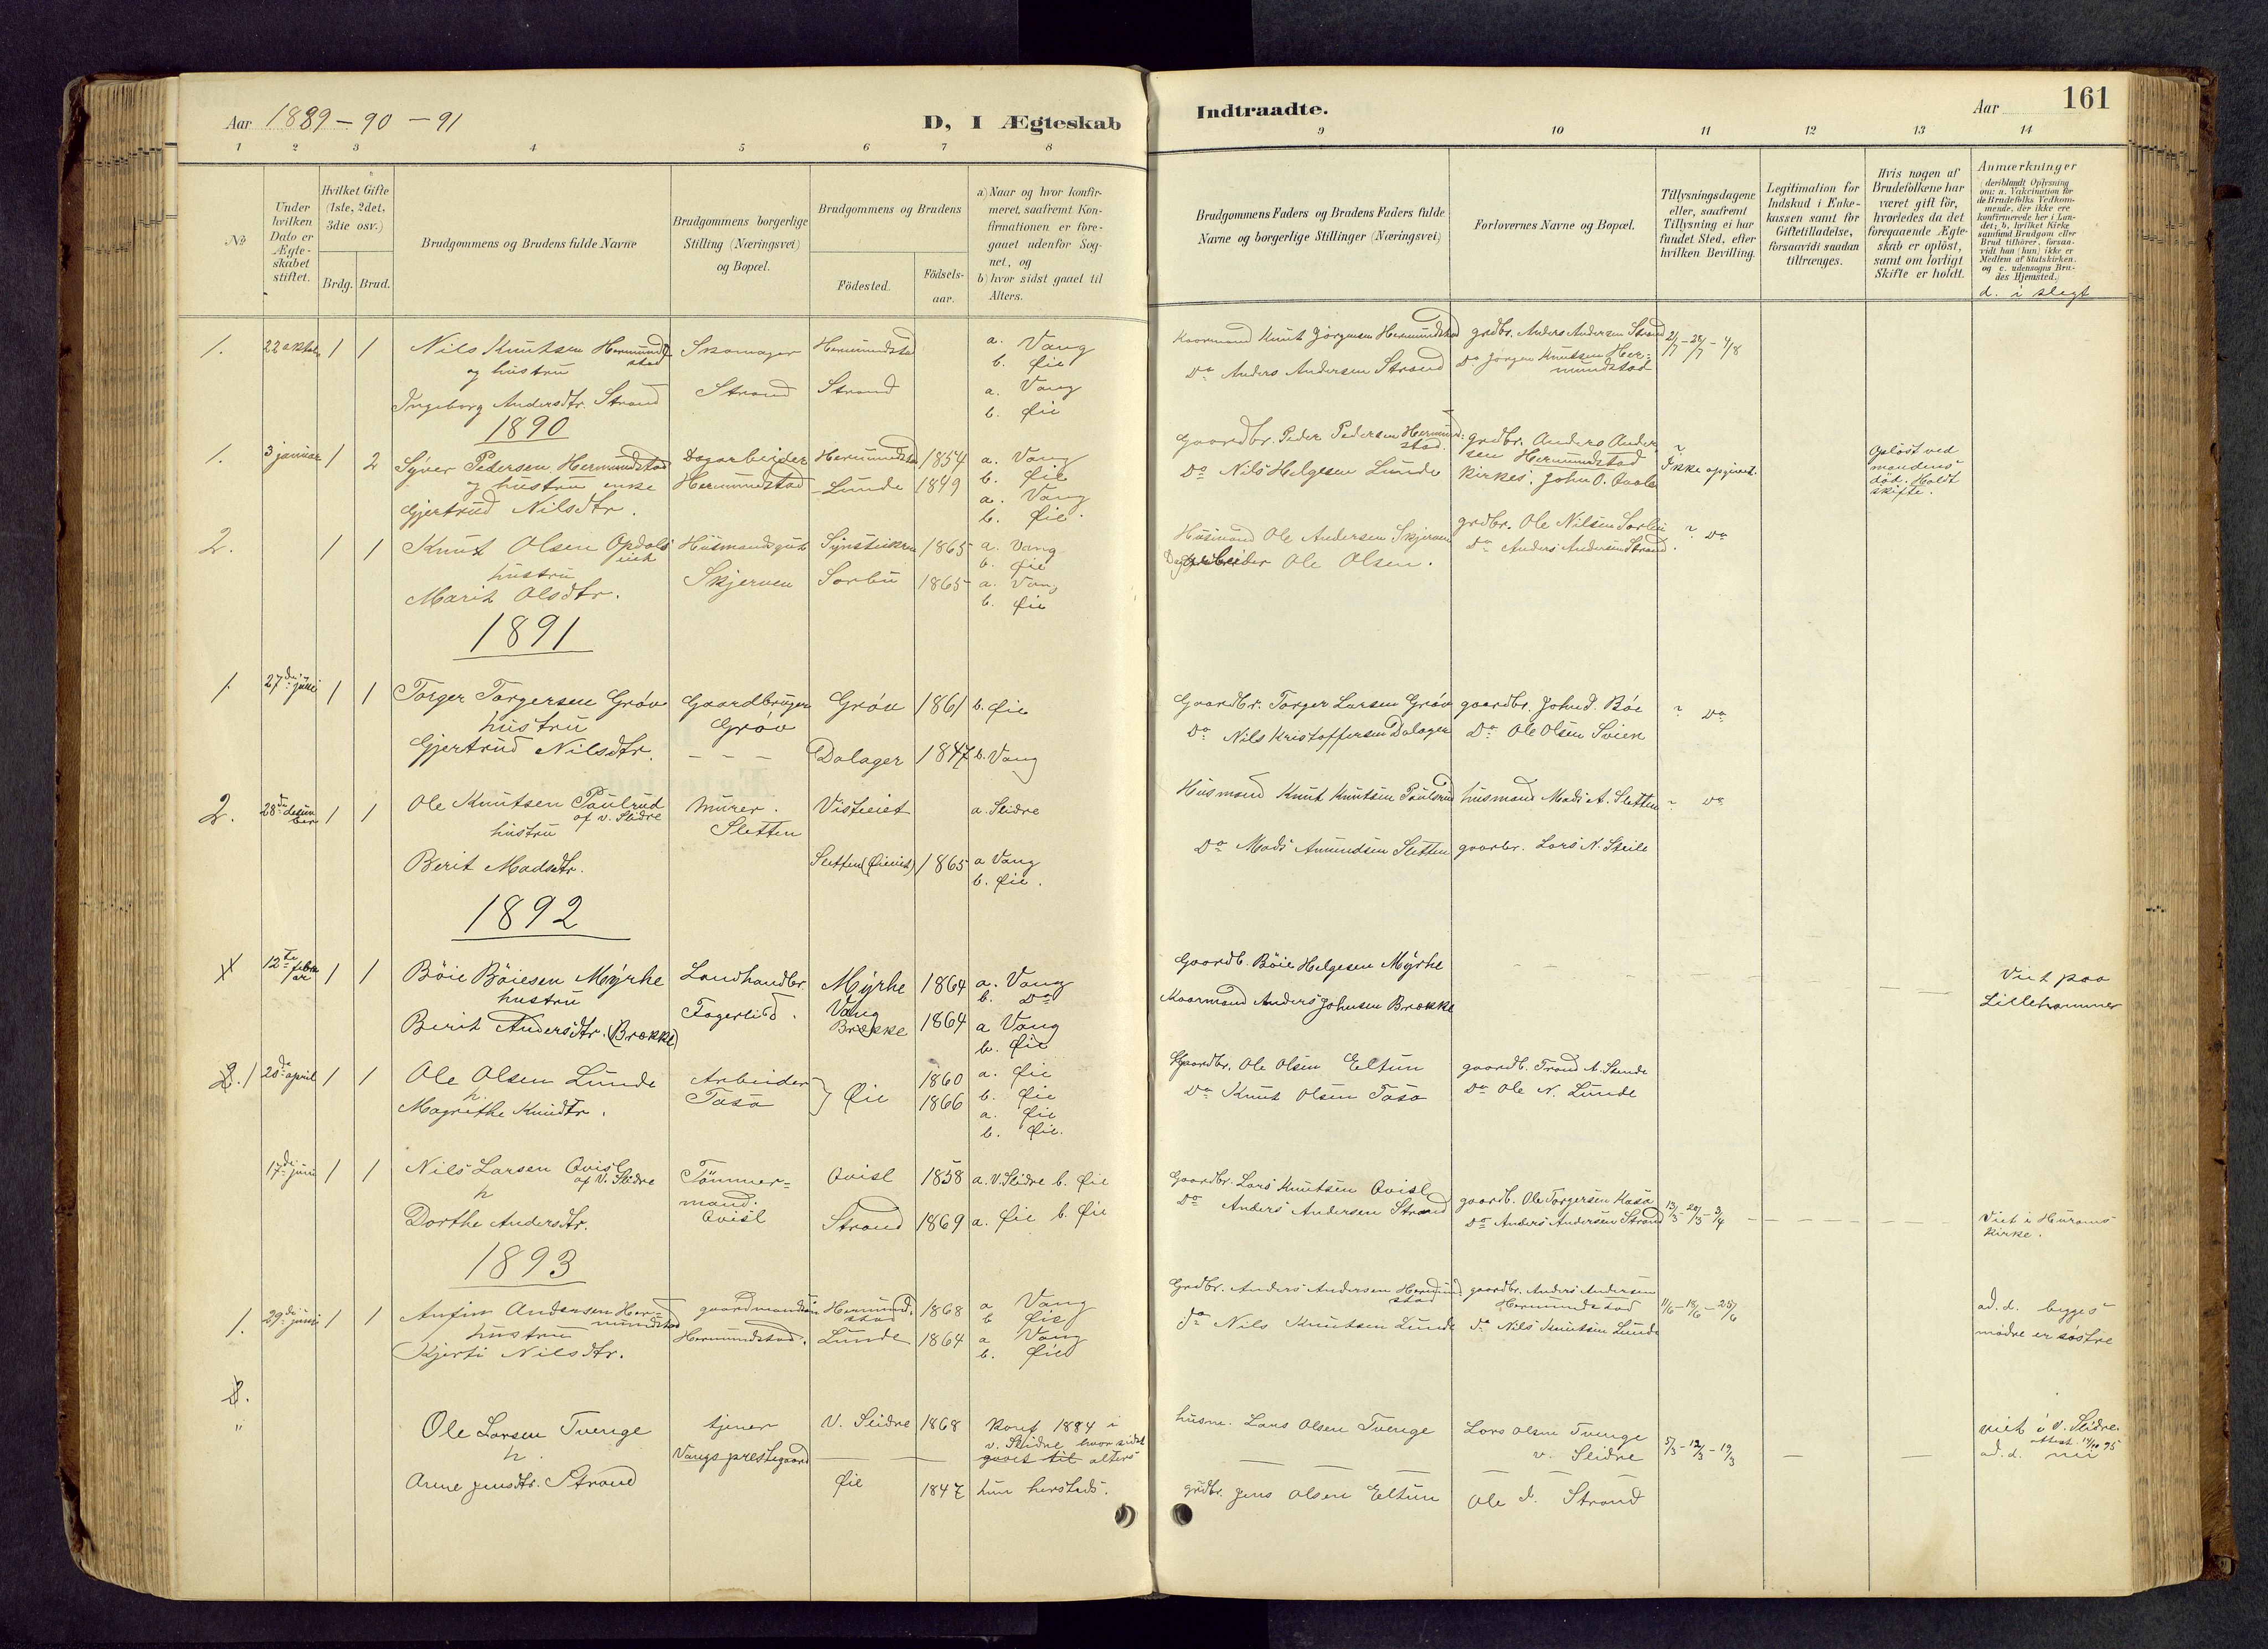 Aar 1889-90-91
D, I Ægteskab
Indtraadte.
Aar
161
1 2 3 4 5 6 7 8 9 10 11 12 13 14
No
Under hvilken Dato er Ægteskabet stiftet.
Hvilket Gifte (1ste, 2det, 3die osv.)
Brdg. Brud.
Brudgommens og Brudens fulde Navne
Brudgommens borgerlige Stilling (Næringsvei) og Bopæl.
Brudgommens og Brudens
Födested.
Födsels-aar.
a) Naar og hvor konfirmeret, saafremt Konfirmationen er foregaaet udenfor Sognet, og
b) hvor sidst gaaet til Alters.
Brudgommens Faders og Brudens Faders fulde Navne og borgerlige Stillinger (Næringsvei)
Forlovernes Navne og Bopæl.
Tillysningsdagene eller, saafremt Tillysning ei har fundet Sted, efter hvilken Bevilling.
Legitimation for Indskud i Enkekassen samt for Giftetilladelse, forsaavidt saadan tiltrænges.
Hvis nogen af Brudefolkene har været gift för, hvorledes da det foregaaende Ægteskab er oplöst, samt om lovligt Skifte er holdt.
Anmærkninger
(deriblandt Oplysning om: a. Vakcination for de Brudefolks Vedkommende, der ikke ere konfirmerede her i Landet; b. hvilket Kirkesamfund Brudgom eller Brud tilhörer, forsaavidt han (hun) ikke er Medlem af Statskirken, og c. udensogns Brudes Hjemsted.)
d. i slegt
1. 22 oktob 1 1 Nils Knutsen Hermundstad Skomager Hermundstad a. Vang
og hustru b. Øie
Ingeborg Andersdtr. Strand Strand Strand a. Vang
b. Øie
Kaarmand Knut Jörgensen Hermundstad grdbr. Anders Andersen Strand 21/7 - 28/7 - 4/8
Do Anders Andersen Strand Do Jörgen Knutsen Hermundstad
1890
1. 3 januar 1 2 Syver Pedersen Hermundstad Dagarbeider Hermundstad 1854 a. Vang
og hustru enke Hermundstad Lunde 1849 b. Øie
Gjertrud Nilsdtr. a. Vang
b. Øie.
Gaardbr. Peder Pedersen Hermundstad. grdbr. Anders Andersen Hermundstad ? Ikke opgivet.
Do Nils Helgesen Lunde Kirkes. John O.
Oplöst ved mandens död. Holdt skifte.
2. 1 1 Knut Olsen Opdalseiet Husmandsgut 1865 a. Vang
hustru b. Øie
Marit Olsdtr. Skjerven Sorbu 1865 a. Vang
b. Øie
Husmand Ole Andersen Skjerven grdbr. Ole Nilsen Sorbu ? Do
Dagarbeider Ole Olsen. Do Anders Andersen Strand.
1891
1. 27de juni 1 1 Torger Torgersen Gröv Gaardbruger Gröv 1861 b. Øie
hustru Gröv
Gjertrud Nilsdtr. - - - Dalager 1847 b. Vang
Gaardbr. Torger Larsen Gröv gaardbr. John J. Böe ? Do
Do Nils Kristoffersen Dalager Do Ole Olsen Svien
2. 28de desember 1 1 Ole Knutsen Paulrud Murer. a. Slidre
af v. Slidre
hustru Sletten
Berit Madsdtr. Sletten (Øieeiet) 1865 a Vang
b. Øie.
Husmand Knut Knutsen Paulsrud husmand Mads A. Sletten ? Do
Do Mads Amundsen Sletten gaarbr. Lars N. Steile
1892
12te februar 1 1 Böie Böiesen Myrhe Landhandler Myrhe 1864 a. Vang
hustru Vang b. Do
Berit Andersdtr. (Brække) Fagerlid. Brække 1864 a Vang
b. Øie
Gaardb. Böie Helgesen Myrhe
Kaarmand Anders Johnsen Brække
Viet paa Lillehammer
1 20de april 1 1 Ole Olsen Lunde Arbeider Øie 1860 a. Øie
h. Tasa 1866 b. Øie
Magrethe Knudtr. a. Øie
b. Øie.
Gaardbr. Ole Olsen Eltun gaardb. Trond A. Stende
Do Knut Olsen Tasa Do Ole N. Lunde
17de juni 1 1 Nils Larsen Qvisl Tömmermand. Qvisl 1858 a. V. Slidre b. Øie
af V. Slidre
h
Dorthe Andersdtr. Qvisl Strand 1869 a. Øie b. Øie
Gaardbr. Lars Knutsen Qvisl gaardb. Ole Torgersen Kasa
Do Anders Andersen Strand Do Anders Andersen Strand 13/3 - 20/3 - 3/4
Viet i Hurums kirke.
1893
1. 29de juni 1 1 Anfin Andersen Hermundstad gaardmandssön Hermundstad 1868 a Vang
hustru b Øie
Kjersti Nilsdtr. Hermundstad. Lunde 1864 a Vang
b. Øie
Grdbr. Anders Andersen Hermundstad gaardbr. Anders Andersen Hermundstad 11/6 - 18/6 - 25/6
do Nils Knutsen Lunde do Nils Knutsen Lunde
ad. d. begges mödre er söstre
2.
" Ole Larsen Tvenge tjener V. Slidre 1868 konf 1884 i
h. Vangs prestegaard v. Slidre hvor sidst gaaet til alters
Anne Jensdtr. Strand Øie 1847 hun hersteds.
husm. Lars Olsen Tvenge Lars Olsen Tvenge
v. Slidre 5/3 - 12/3 - 19/3
grdbr. Jens Olsen Eltun Ole J. Strand
viet i V. Slidre.
attest. 14/10 95
ad. d. nei